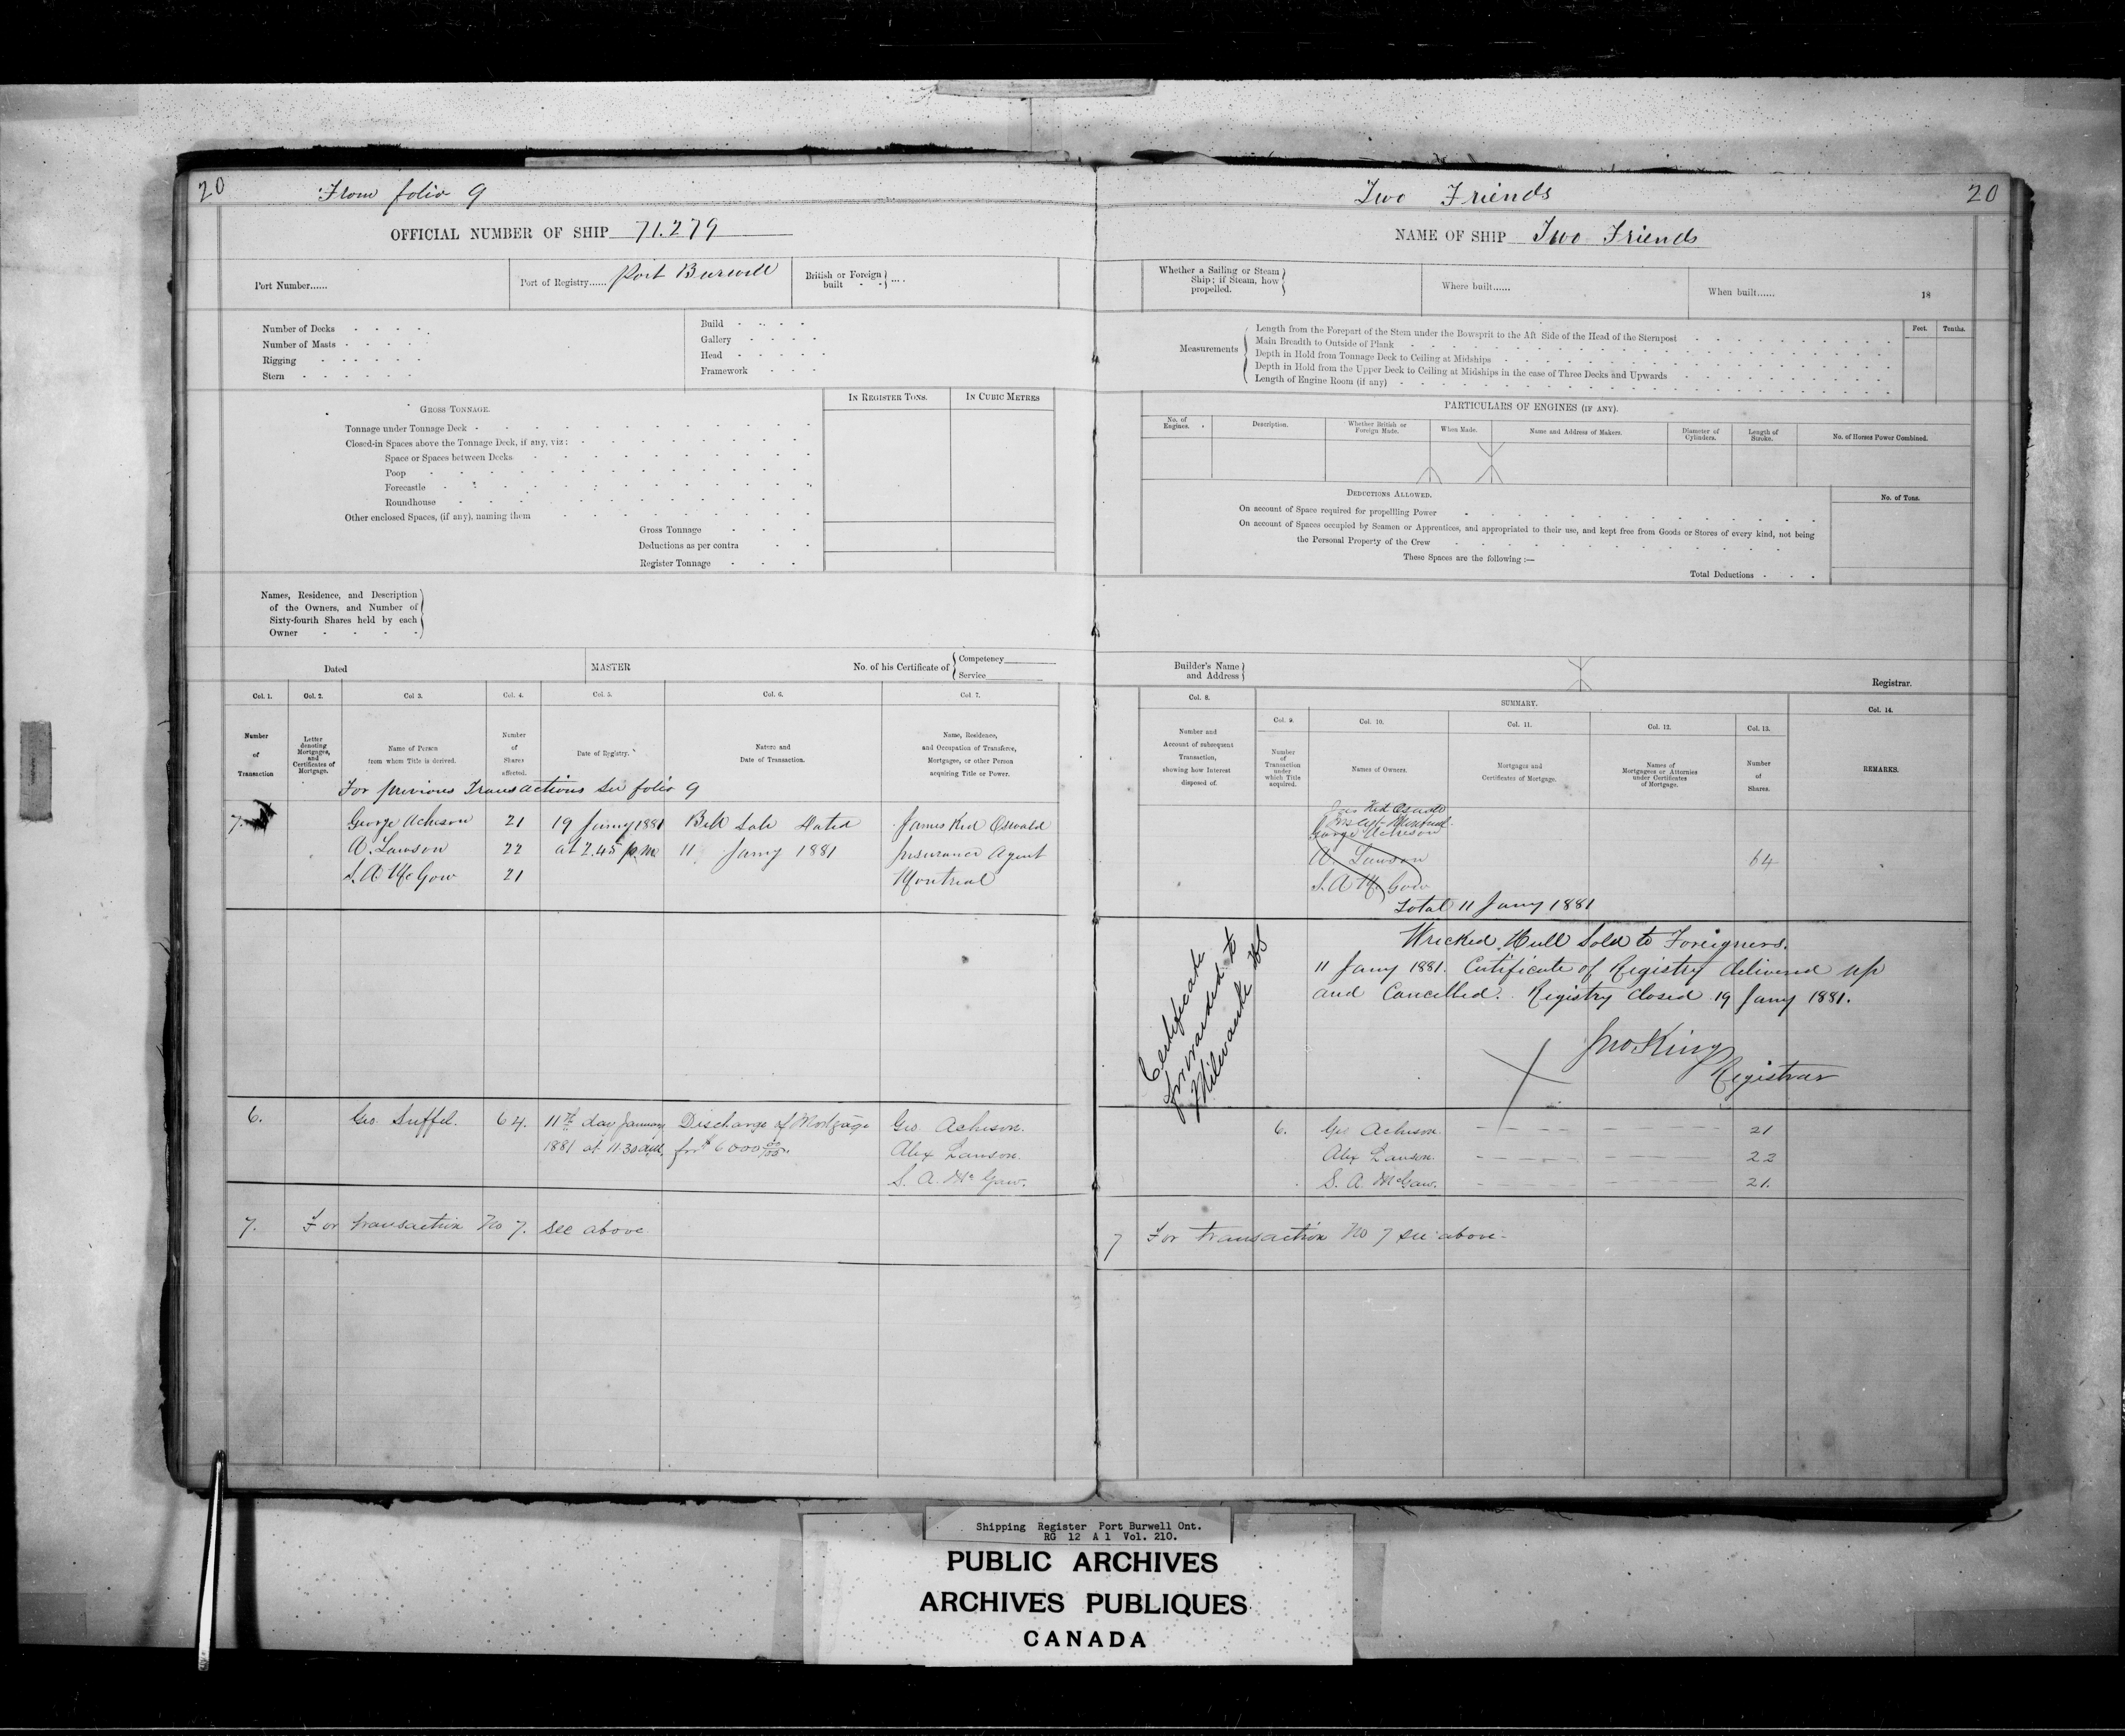 20 From folio 9
OFFICIAL NUMBER OF SHIP 71.279
Port Number......
Port of Registry...... Port Burwell
British or Foreign built
Number of Decks
Number of Masts
Rigging
Stern
Build
Gallery
Head
Framework
GROSS TONNAGE.
IN REGISTER TONS.
IN CUBIC METRES
Tonnage under Tonnage Deck
Closed-in Spaces above the Tonnage Deck, if any, viz:
Space or Spaces between Decks
Poop
Forecastle
Roundhouse
Other enclosed Spaces, (if any), naming them
Gross Tonnage
Deductions as per contra
Register Tonnage
Names, Residence, and Description
of the Owners, and Number of
Sixty-fourth Shares held by each
Owner
Dated
MASTER
No. of his Certificate of
Competency
Service
Col. 1. Col. 2. Col 3. Col. 4. Col. 5. Col. 6. Col. 7.
Number of Transaction
Letter denoting Mortgages, and Certificates of Mortgage.
Name of Person from whom Title is derived.
Number of Shares affected.
Date of Registry.
Nature and Date of Transaction.
Name, Residence, and Occupation of Transferee, Mortgagee, or other Person acquiring Title or Power.
For previous Transactions see folio 9
7. George Acheson 21 19 Jany 1881 Bill Sale Dated James Kid Oswald
A. Lawson 22 at 2.45 p.m. 11 Jany 1881 Insurance Agent
S. A McGow 21 Montreal
6. Geo. Suffel. 64. 11th day January Discharge of Mortgage Geo. Acheson.
1881 at 11.30 a.m. for $6000 00/100 Alex Lawson.
S. A. Mc Gaw.
7. For transaction No 7. see above.
Two Friends 20
NAME OF SHIP Two Friends
Whether a Sailing or Steam
Ship; if Steam, how
propelled.
Where built......
When built......
18
Measurements
Length from the Forepart of the Stem under the Bowsprit to the Aft Side of the Head of the Sternpost
Main Breadth to Outside of Plank
Depth in Hold from Tonnage Deck to Ceiling at Midships
Depth in Hold from the Upper Deck to Ceiling at Midships in the case of Three Decks and Upwards
Length of Engine Room (if any)
Feet. Tenths.
PARTICULARS OF ENGINES (IF ANY).
No. of Engines.
Description.
Whether British or Foreign Made.
When Made.
Name and Address of Makers.
Diameter of Cylinders.
Length of Stroke.
No. of Horses Power Combined.
DEDUCTIONS ALLOWED.
No. of Tons.
On account of Space required for propellling Power
On account of Spaces occupied by Seamen or Apprentices, and appropriated to their use, and kept free from Goods or Stores of every kind, not being
the Personal Property of the Crew
These Spaces are the following :—
Total Deductions
Builder's Name
and Address
Registrar.
Col. 8.
SUMMARY.
Col. 9. Col. 10. Col. 11. Col. 12. Col. 13. Col. 14.
Number and Account of subsequent Transaction, showing how Interest disposed of.
Number of Transaction under which Title acquired.
Names of Owners.
Mortgages and Certificates of Mortgage.
Names of Mortgagees or Attornies under Certificates of Mortgage.
Number of Shares.
REMARKS.
Kid Oswald
George Acheson
A. Lawson 64
S. A Mc Gow
Total 11 Jany 1881
Wrecked. Hull Sold to Foreigners.
11 Jany 1881. Certificate of Registry delivered up
and Cancelled. Registry Closed 19 Jany 1881.
Jno King
Registrar
Certificate
forwarded to
Milwaukee
6. Geo Acheson. 21
Alex Lawson. 22
S. A. McGaw. 21.
7 For transaction No 7 see above.
Shipping Register Port Burwell Ont.
RG 12 A 1 Vol. 210.
PUBLIC ARCHIVES
ARCHIVES PUBLIQUES
CANADA